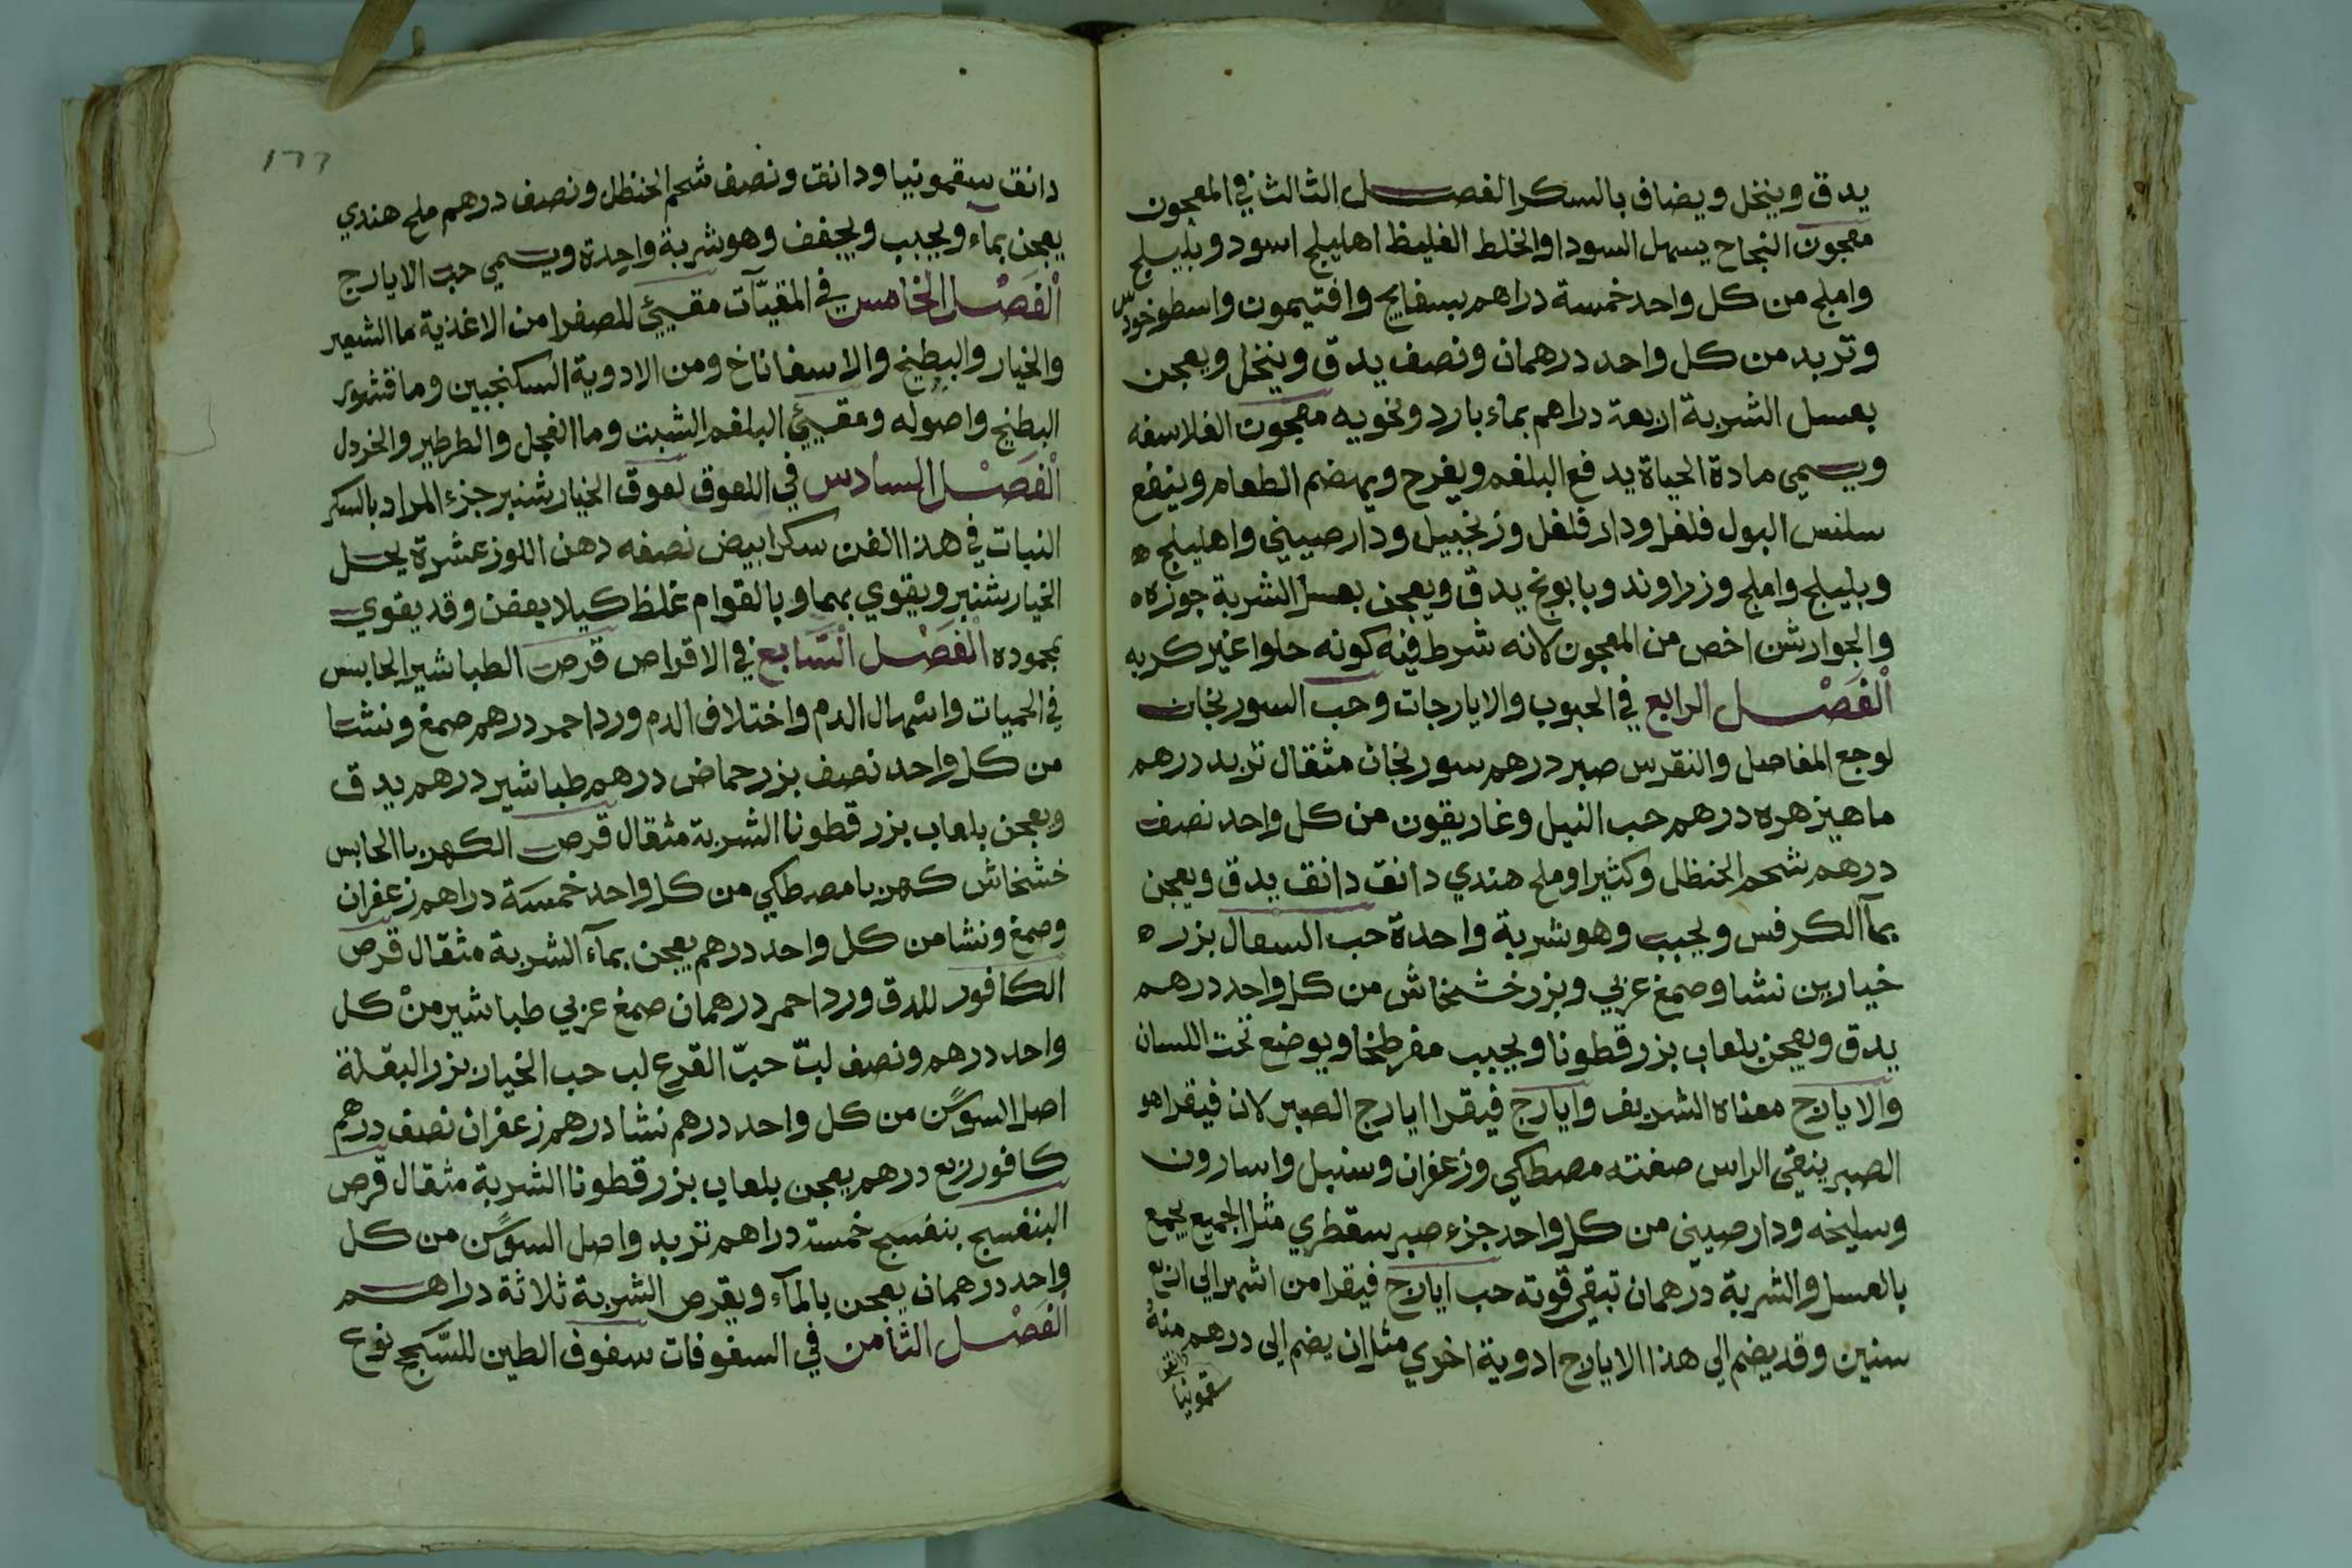 يدق وينخل ويضاف بالسكر الفصل الثالث في المعجون
معجون النجاح يسهل السودا والخلط الغليظ اهليلج اسود وبليلج
واملج من كل واحد خمسة دراهم بسفايج وافتيمون واسطوخودس
وتربد من كل واحد درهمان ونصف يدق وينخل ويعجن
بعسل الشربة اربعة دراهم بماء بارد ونخويه معجون الفلاسفه
ويسمي مادة الحياة يدفع البلغم ويفرح ويهضم الطعام وينفع
سلس البول فلفل ودار فلفل وزنجبيل ودارصيني واهليلج ه
وبليلج واملج وزراوند وبابونج يدق ويعجن بعسل الشربة جوزه ه
والجوارشن اخص من المعجون لانه شرط فيه كونه حلوا غير كريه
الْفَصْل الرابع في الحبوب والايارجات وحب السورنجان
لوجع المفاصل والنقرس صبر درهم سورنجان مثقال تربد درهم
ماهيزهره درهم حب النيل وغاريقون من كل واحد نصف
درهم شحم الحنظل وكثيرا وملح هندي دانق دانق يدق ويعجن
بمآ الكرفس ويحبب وهو شربة واحدة حب السعال بزر ه
خيارين نشا وصمغ عربي وبزر خشخاش من كل واحد درهم
يدق ويعجن بلعاب بزرقطونا ويحبب مفرطخا ويوضع تحت اللسان
والايارج معناه الشريف وايارج فيقرا ايارج الصبر لان فيقرا هو
الصبر ينقي الراس صفته مصطكي وزعفران وسنبل واسارون
وسليخه ودارصيني من كل واحد جزء صبر سقطري مثل الجميع يجمع
بالعسل والشربة درهمان تبقي قوته حب ايارج فيقرا من اشهر الي اربع
سنين وقد يضم الي هذا الايارج ادوية اخري مثل ان يضم الي درهم منه
دانق
سقمونيا
١٦٦
دانق سقمونيا ودانق ونصف شحم الحنظل ونصف درهم ملح هندي
يعجن بماء ويحبب ويجفف وهو شربة واحدة ويسمي حب الايارج
الْفَصْل الخامس في المقيّآت مقيئ للصفرا من الاغذية ما الشعير
والخيار والبطيخ والاسفاناخ ومن الادوية السكنجبين وما قشور
البطيخ واصوله ومقيئ البلغم الشبت وما الفجل والطرطير والخردل
الْفَصْل السادس في اللعوق لعوق الخيار شنبر جزء المراد بالسكر
النبات في هذا الفن سكر ابيض نصفه دهن اللوز عشرة يحل
الخيار شنبر ويقوي بهما وبالقوام غلظ كيلا يعفن وقد يقوي
بمحموده الْفَصْل السَّابع في الاقراص قرص الطباشير الحابس
في الحميات واسهال الدم واختلاف الدم ورد احمر درهم صمغ ونشا
من كل واحد نصف بزر حماض درهم طباشير درهم يدق
ويعجن بلعاب بزرقطونا الشربة مثقال قرص الكهربا الحابس
خشخاش كهربا مصطكي من كل واحد خمسة دراهم زعفران
وصمغ ونشا من كل واحد درهم يعجن بمآء الشربة مثقال قرص
الكافور للدق ورد احمر درهمان صمغ عربي طباشير منْ كل
واحد درهم ونصف لبّ حبّ القرع لب حب الخيار بزر البقلة
اصل السوسن من كل واحد درهم نشا درهم زعفران نصف درهم
كافور ربع درهم يعجن بلعاب بزرقطونا الشربة مثقال قرص
البنفسج بنفسج خمسة دراهم تربد واصل السوسن من كل
واحد درهمان يعجن بالمآء ويقرص الشربة ثلاثة دراهم
الفَصْل الثامن في السفوفات سفوف الطين للسّحج نوع